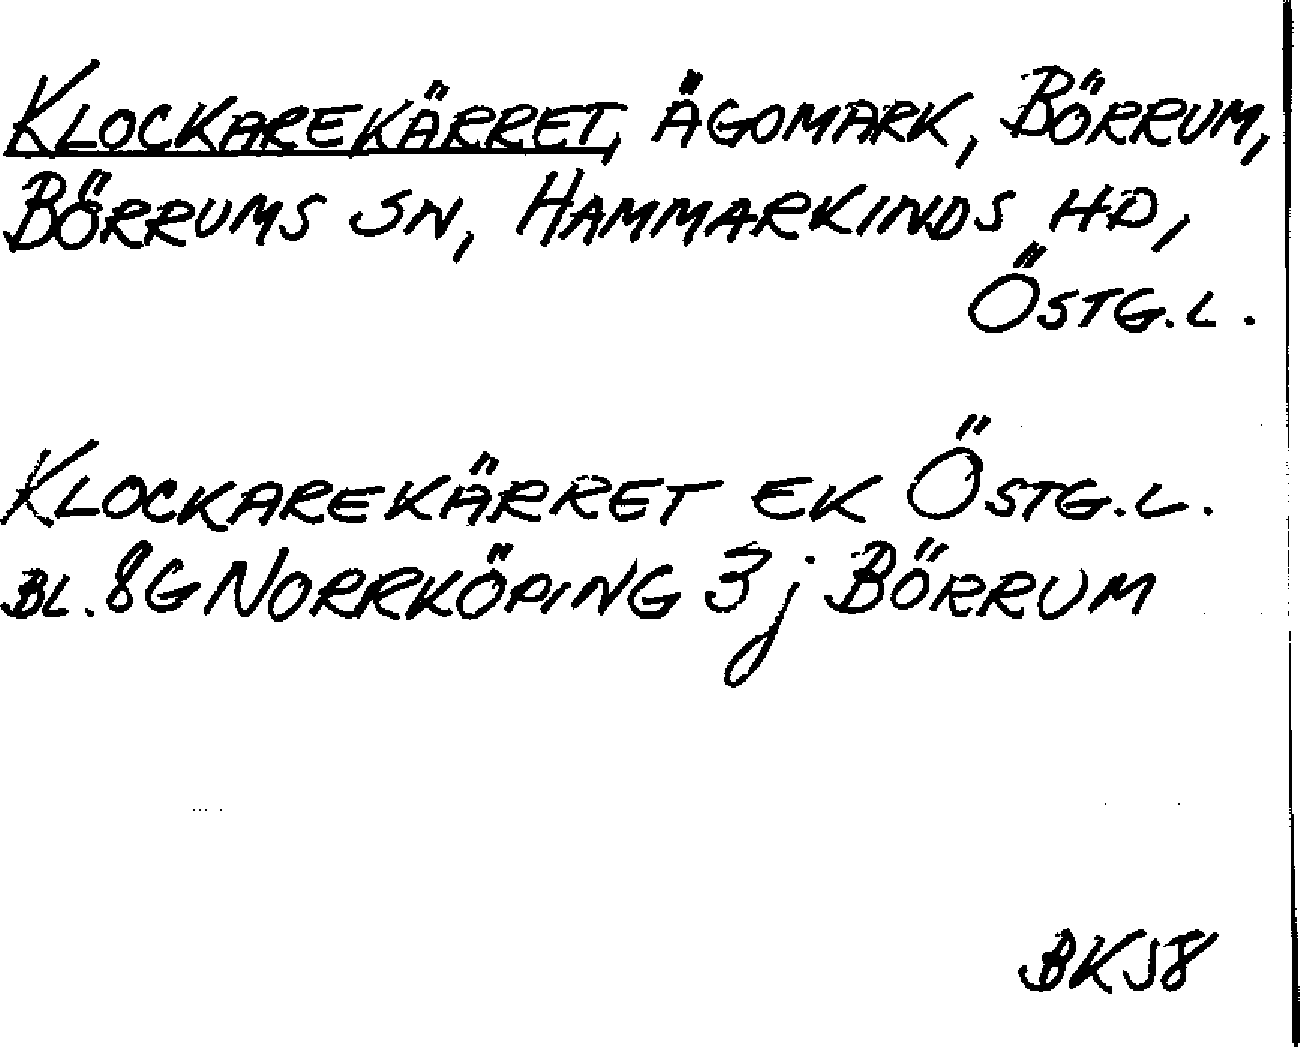 KLOCKAREKÄRRET, ÄGOMARK, BÖRRUM,
BÖRRUMS SN, HAMMARKINDS HD,
ÖSTG.L.
KLOCKAREKÄRRET EK ÖSTG.L.
BL. 8G NORRKÖPING 3j BÖRRUM
BK58